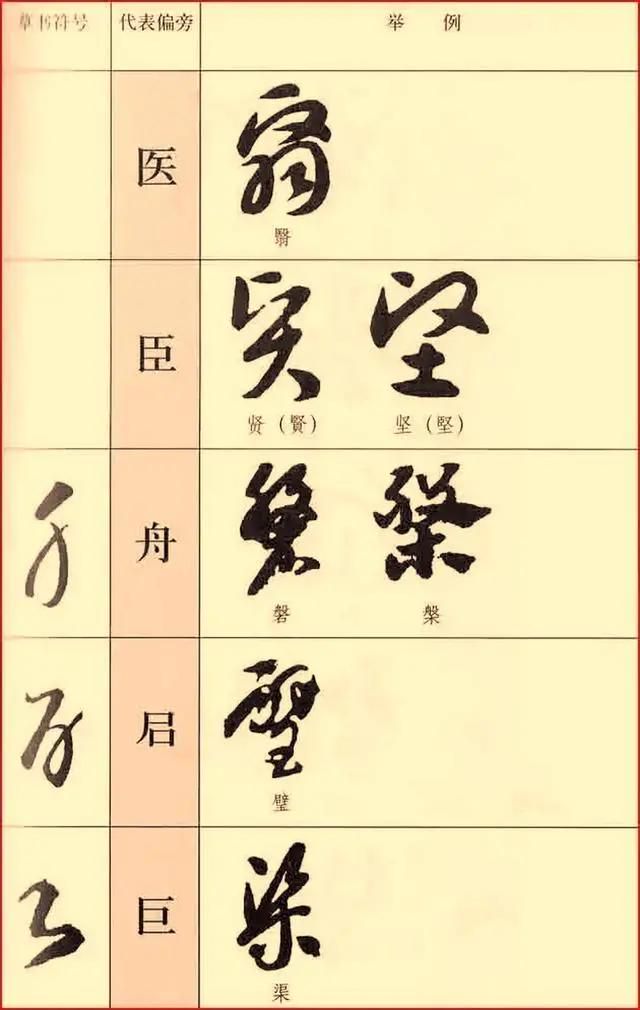 草书符号 代表偏旁 举 例
医
翳
臣
贤（賢） 坚（堅）
舟
磐 槃
𡰪
璧
巨
渠